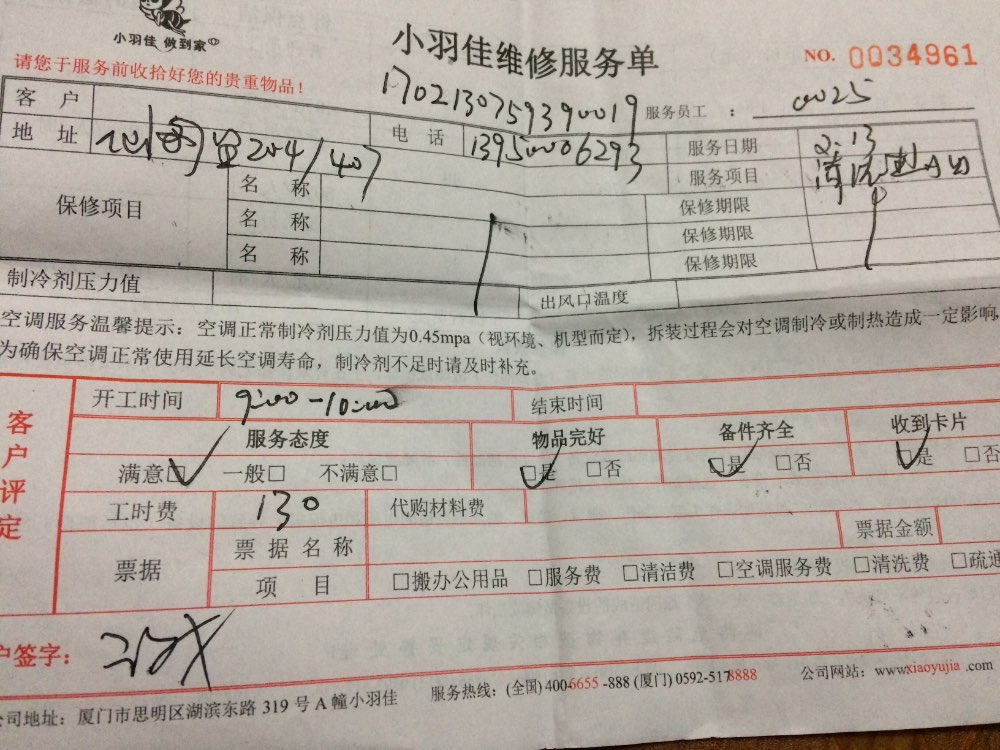 小羽佳 做到家
小羽佳维修服务单
NO. 0034961
请您于服务前收拾好您的贵重物品！
1702130759390019
服务员工 ： 0025
客 户
地 址 204/407 电 话 13950006293 服务日期 2.13
服务项目 清洗
保修项目 名 称 保修期限
名 称 保修期限
名 称 保修期限
制冷剂压力值 出风口温度
空调服务温馨提示：空调正常制冷剂压力值为0.45mpa（视环境、机型而定），拆装过程会对空调制冷或制热造成一定影响
为确保空调正常使用延长空调寿命，制冷剂不足时请及时补充。
客户评定
开工时间 9:00-10:00 结束时间
服务态度 物品完好 备件齐全 收到卡片
满意☑ 一般□ 不满意□ ☑是 □否 ☑是 □否 ☑是 □否
工时费 130 代购材料费
票据 票 据 名 称 票据金额
项 目 □搬办公用品 □服务费 □清洁费 □空调服务费 □清洗费 □疏通
户签字：
公司地址：厦门市思明区湖滨东路 319 号 A 幢小羽佳 服务热线：(全国) 400-6655-888 (厦门) 0592-5178888 公司网站：www.xiaoyujia.com